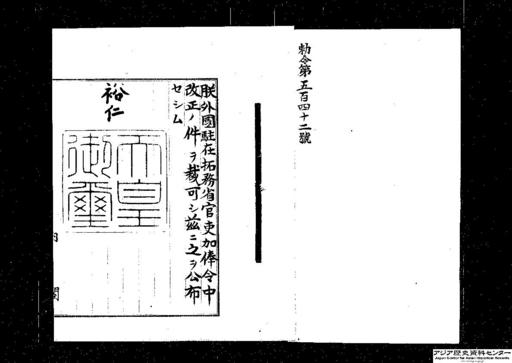 勅令第五百四十二號
朕外國駐在拓務省官吏加俸令中
改正ノ件ヲ裁可シ茲ニ之ヲ公布
セシム
裕仁
天皇
御璽
内閣
アジア歴史資料センター
Japan Center for Asian Historical Records